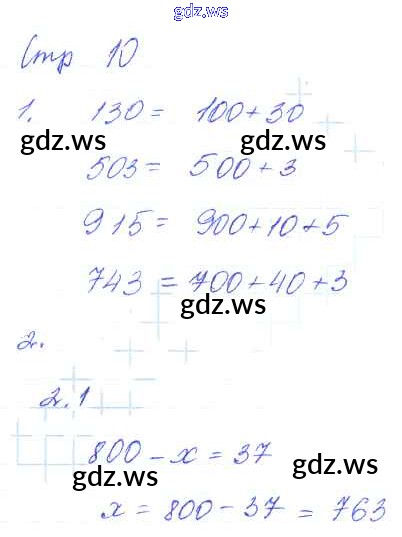 gdz.ws
Стр 10
1. 130 = 100 + 30
gdz.ws gdz.ws
503 = 500 + 3
915 = 900 + 10 + 5
gdz.ws gdz.ws
743 = 700 + 40 + 3
gdz.ws
2.
gdz.ws
2.1
800 - x = 37
gdz.ws gdz.ws
x = 800 - 37 = 763